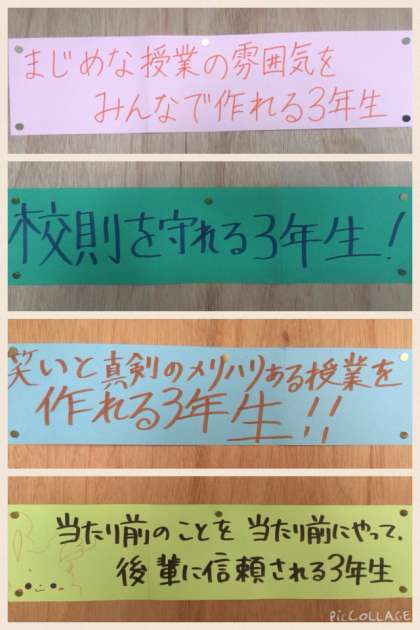 まじめな授業の雰囲気を
みんなで作れる3年生
校則を守れる3年生!
笑いと真剣のメリハリある授業を
作れる3年生!!
当たり前のことを 当たり前にやって、
後輩に信頼される3年生
PicCOLLAGE